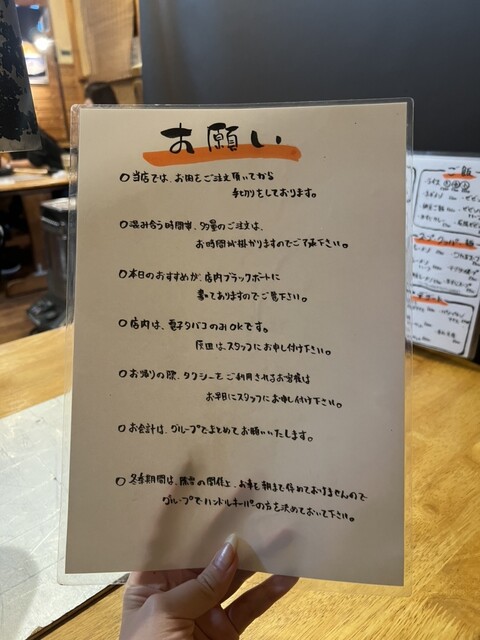 お願い
○当店では、お肉をご注文頂いてから
手切りをしております。
○混み合う時間帯、多量のご注文は、
お時間が掛かりますのでご了承下さい。
○本日のおすすめが、店内ブラックボードに
書いてありますのでご覧下さい。
○店内は、電子タバコのみOKです。
灰皿は、スタッフにお申し付け下さい。
○お帰りの際、タクシーをご利用されるお客様は
お早目にスタッフにお申し付け下さい。
○お会計は、グループでまとめてお願いいたします。
○冬季期間は、除雪の関係上、お車を朝まで停めておけませんので
グループでハンドルキーパーの方を決めておいて下さい。
ご飯